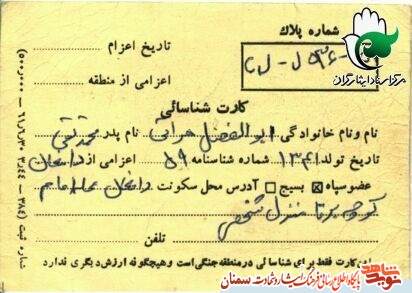 شماره پلاك
تاریخ اعزام
اعزامی از منطقه
مرکز اسناد ایثارگران
کارت شناسائی
نام و نام خانوادگی ابوالفضل هراتی نام پدر محمدتقی
تاریخ تولد ۱۳۴۱ شماره شناسنامه ۵۹ اعزامی از دامغان
عضو سپاه ☒ بسیج ☐ آدرس محل سکونت دامغان محله امام
کوچه برنا منزل شخصی
تلفن
این کارت فقط برای شناسائی در منطقه جنگی است و هیچگونه ارزش دیگری ندارد
شماره ثبت (۳۸۴ – ۳۸۴۴ – ۶۱/۶/۳۰ (۵۰۰/۰۰۰
نوید شاهد
پایگاه اطلاع رسانی فرهنگ ایثار و شهادت سمنان